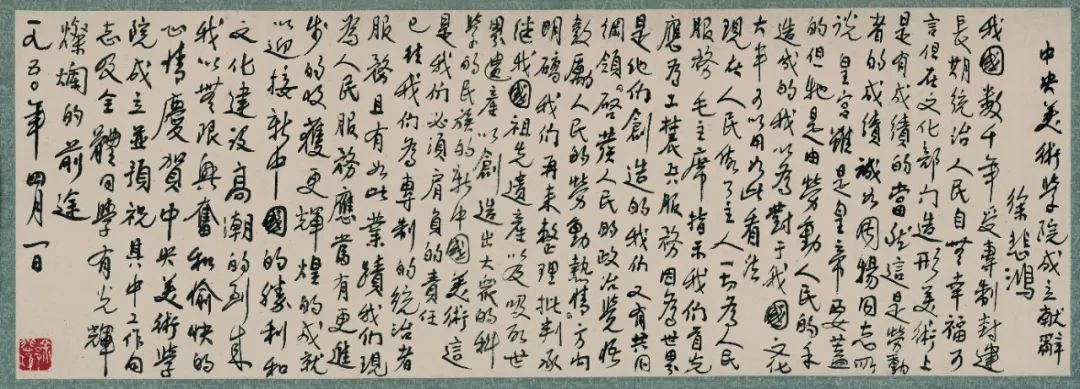 中央美術学院成立献辭
徐悲鴻
我國數千年受專制封建
長期統治人民自無幸福可
言但在文化部门造形美術上
是有成績的當然這是勞動
者的成績誠如周揚同志所
说皇宫雖是皇帝要蓋
的但牠是由勞動人民的手
造成的我以為對于我國文化
大半可以用如此看法
現在人民做了主人一切為人民
服務毛主席指示我们首先
應为工農兵服務因為世界
是他们創造的我们又有共同
綱領啓發人民的政治覺悟
鼓勵人民的勞動熱情方向
明確我们再来整理批判承
继我國祖先遺產以及吸取世
界遺產以創造出大衆的科
學的民族的新中國美術這
是我们必須肩負的責任
已往我们為專制的统治者
服務且有如此業蹟我们現
為人民服務應當有更進
步的收獲更輝煌的成就
以迎接新中國的勝利和
文化建设高潮的到来
我以無限興奮和愉快的
心情慶賀中央美術學
院成立並預祝其中工作同
志及全體同學有光輝
燦爛的前途
一九五〇年四月一日